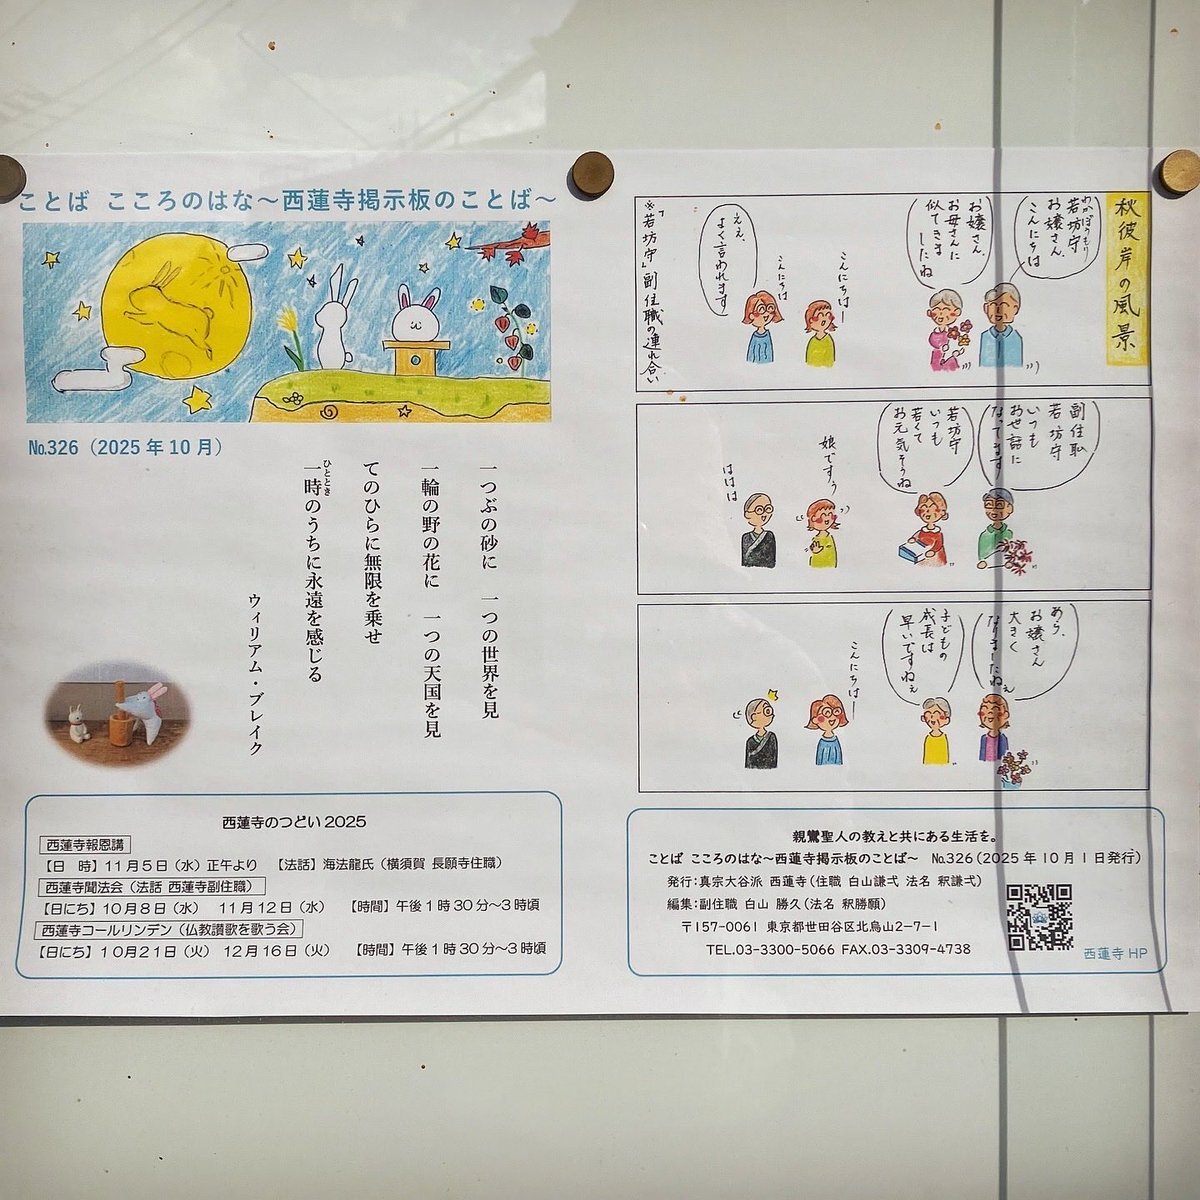 ことば こころのはな～西蓮寺掲示板のことば～
№326（2025年10月）
一つぶの砂に 一つの世界を見
一輪の野の花に 一つの天国を見
てのひらに無限を乗せ
一時のうちに永遠を感じる
ひととき
ウィリアム・ブレイク
西蓮寺のつどい2025
西蓮寺報恩講
【日 時】11月5日（水）正午より 【法話】海法龍氏（横須賀 長願寺住職）
西蓮寺聞法会（法話 西蓮寺副住職）
【日にち】10月8日（水） 11月12日（水） 【時間】午後1時30分～3時頃
西蓮寺コールリンデン（仏教讃歌を歌う会）
【日にち】10月21日（火） 12月16日（火） 【時間】午後1時30分～3時頃
秋彼岸の風景
わかぼうもり
若坊守
お嬢さん、
こんにちは
お嬢さん、
お母さんに
似てきま
したね
こんにちはー
こんにちは
ええ、
よく言われます
※「若坊守」副住職の連れ合い
副住職
若坊守
いつも
お世話に
なってます
若坊守
いつも
若くて
お元気そうね
娘ですぅ
ははは
あら、
お嬢さん
大きく
なりましたねぇ
子どもの
成長は
早いですねぇ
こんにちはー
親鸞聖人の教えと共にある生活を。
ことば こころのはな～西蓮寺掲示板のことば～ №326（2025年10月1日発行）
発行：真宗大谷派 西蓮寺（住職 白山謙弌 法名 釈謙弌）
編集：副住職 白山 勝久（法名 釈勝願）
〒157-0061 東京都世田谷区北烏山2-7-1
TEL.03-3300-5066 FAX.03-3309-4738
西蓮寺HP